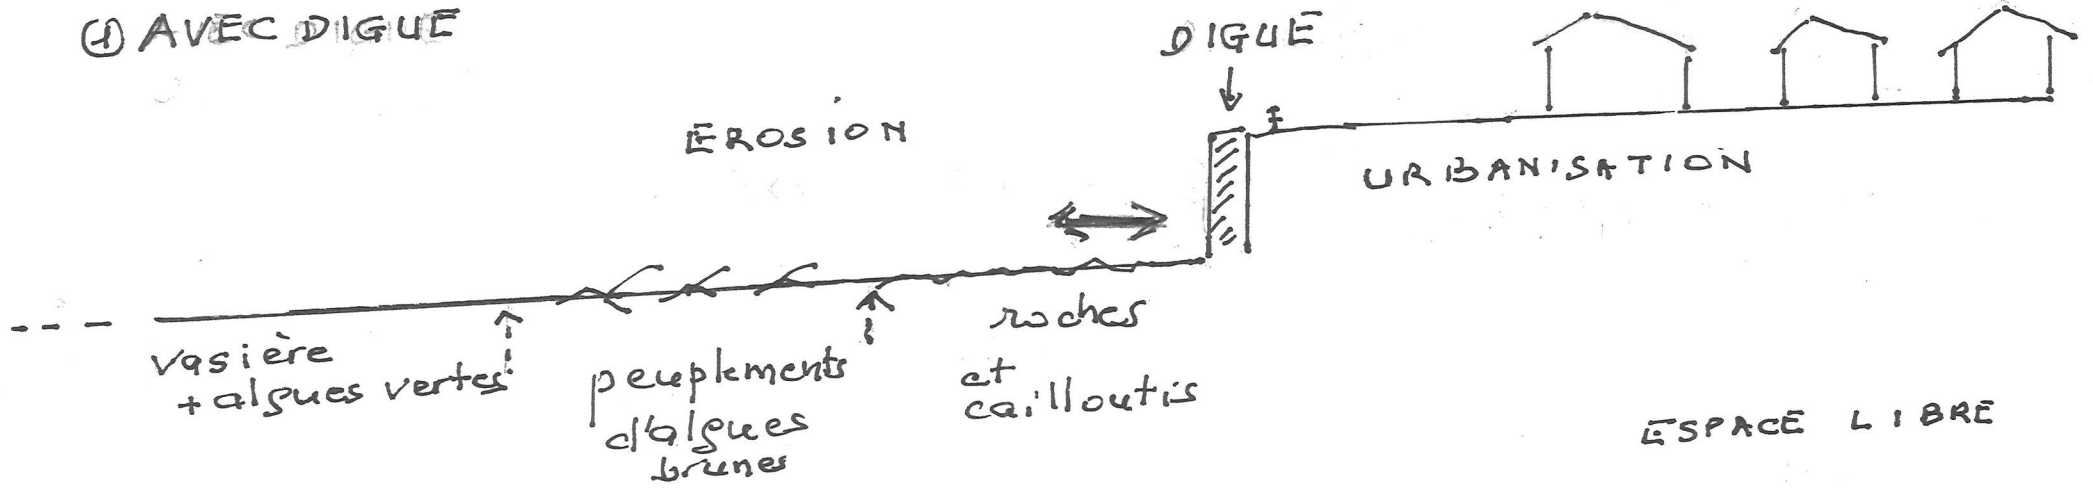 ① AVEC DIGUE
DIGUE
EROSION
URBANISATION
vasière
+ algues vertes
peuplements
d'algues
brunes
roches
et
cailloutis
ESPACE LIBRE